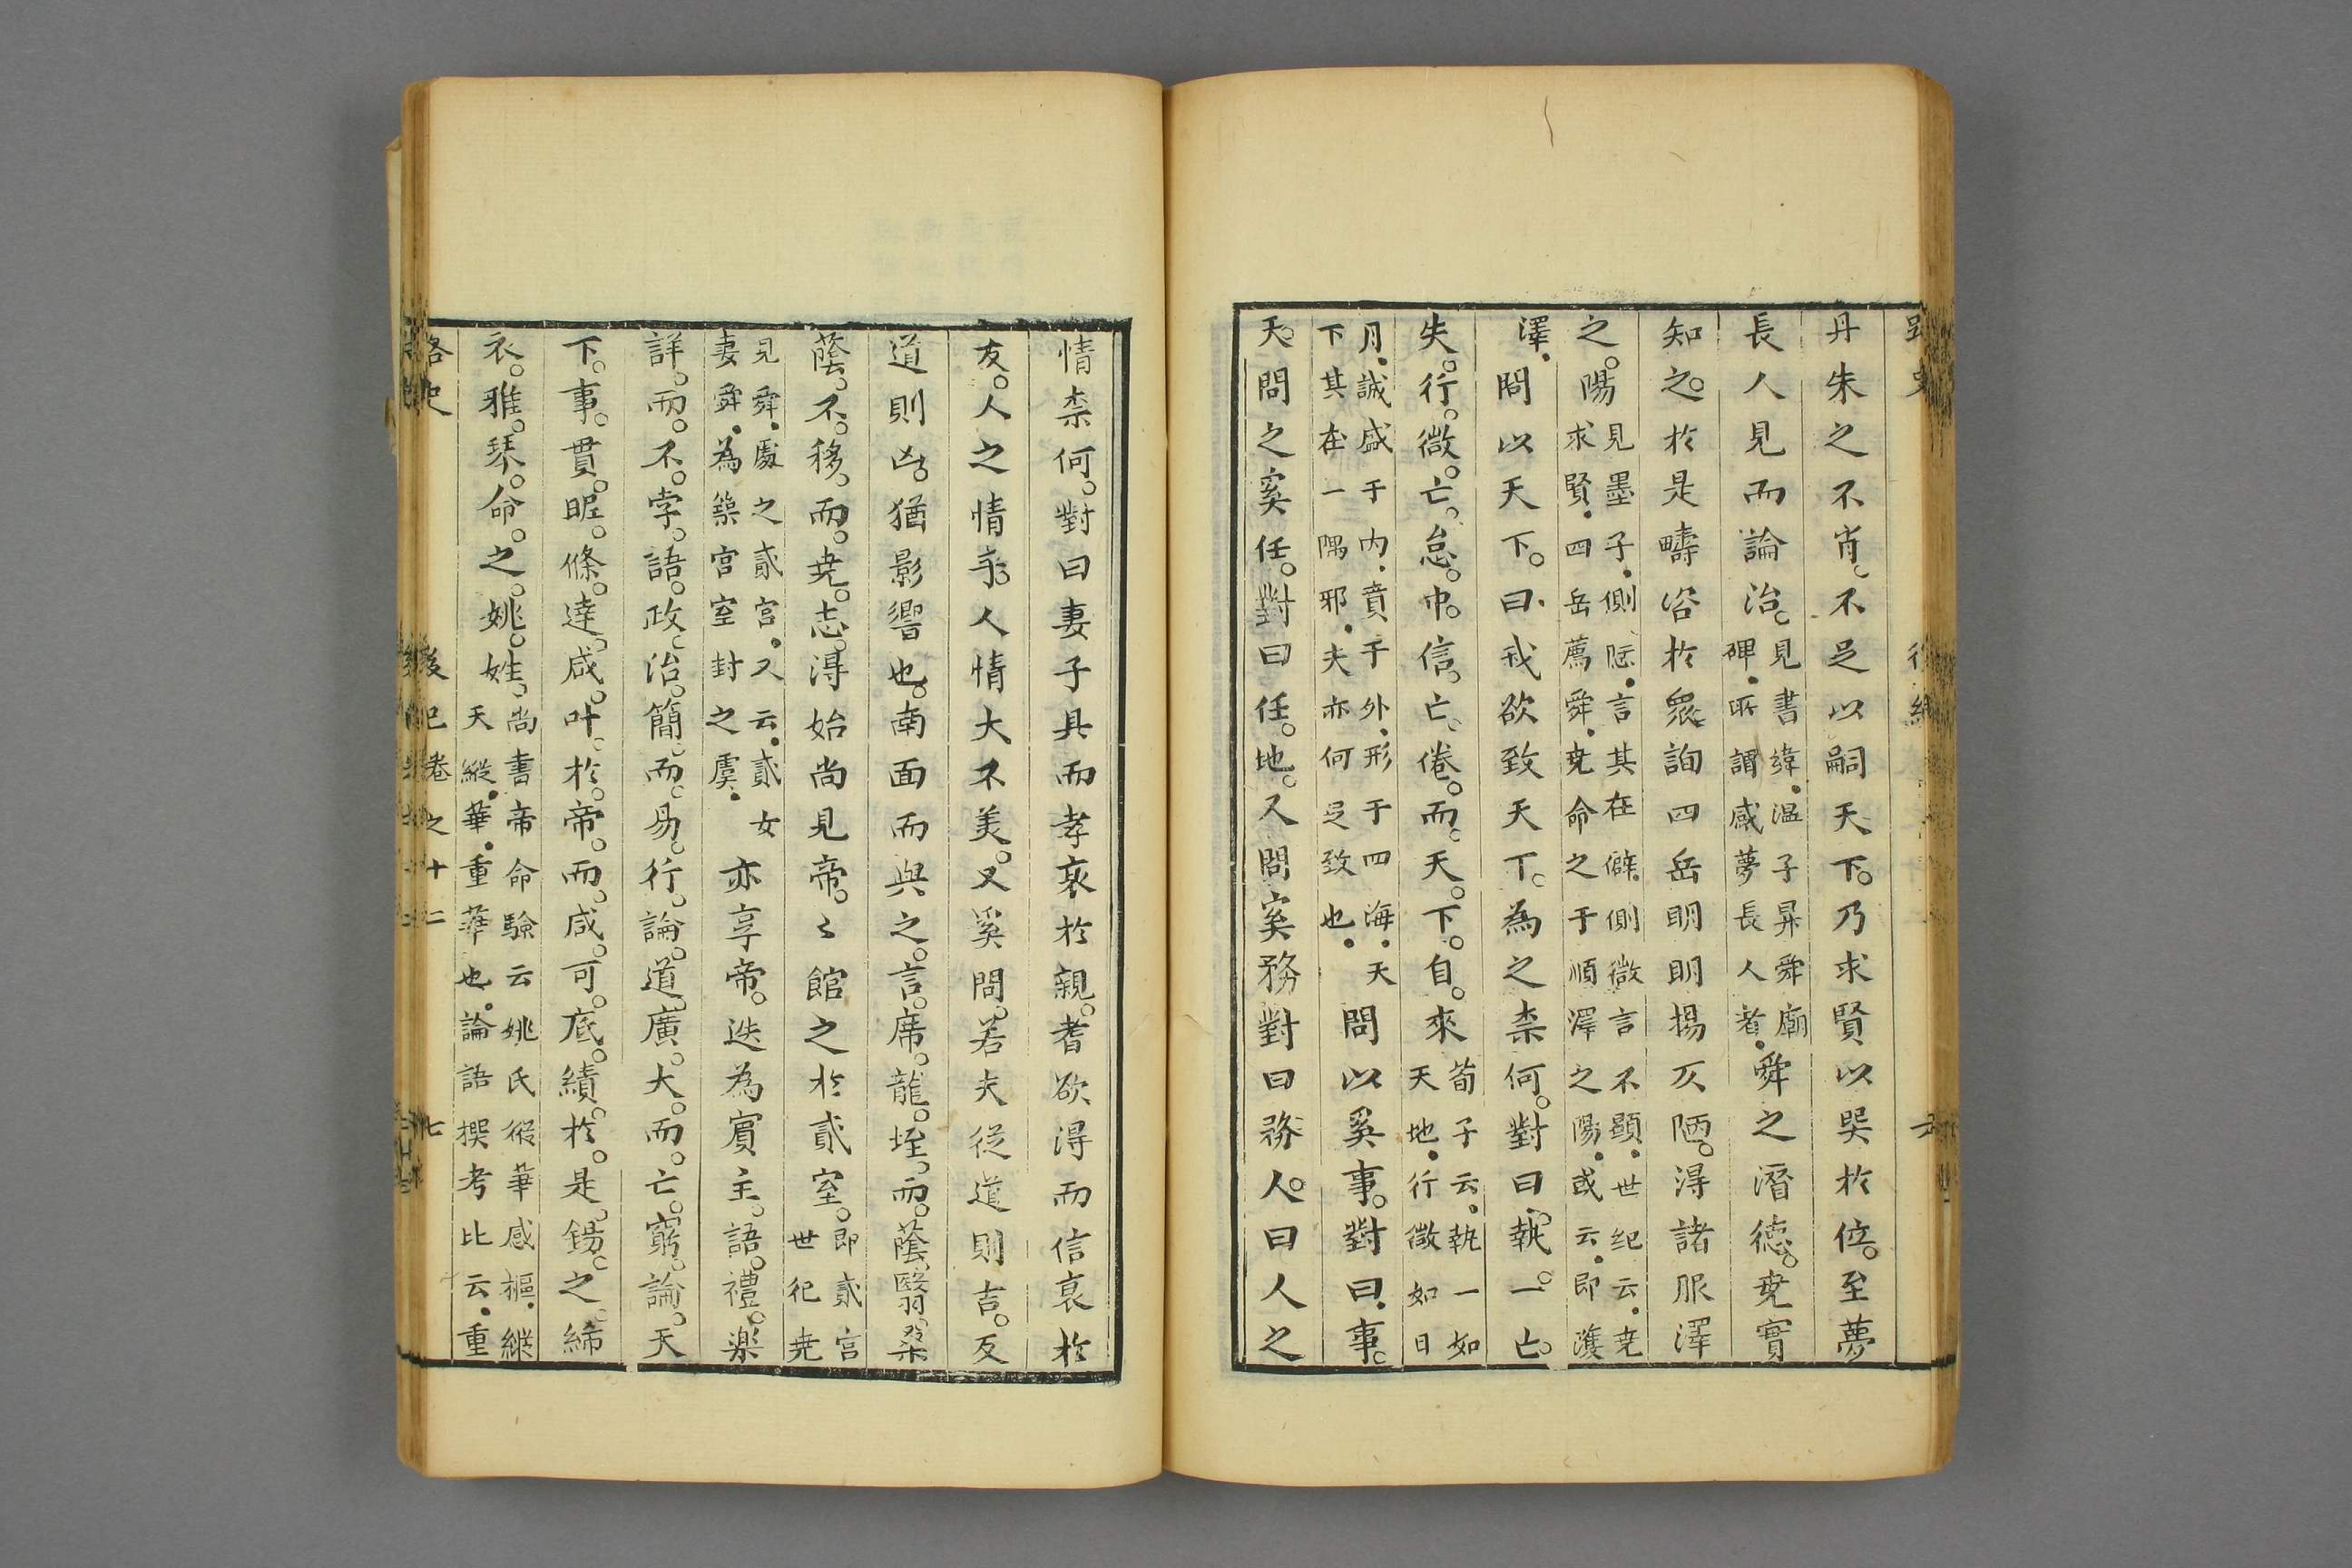 丹朱之不肖不足以嗣天下乃求賢以巽於位至夢
長人見而論治見書緯温子昇舜廟碑所謂感夢長人者舜之濳德堯實
知之於是疇咨於衆詢四岳明明揚仄陋得諸服澤
之陽見墨子側陋言其在僻側微言不顯世紀云堯求賢四岳薦舜堯命之于順澤之陽或云即濩
澤問以天下曰我欲致天下為之柰何對曰執一亡
失行微亡怠中信亡倦而天下自來荀子云執一如天地行微如日
月誠盛于内賁于外形于四海天下其在一隅邪夫亦何足致也問以奚事對曰事
天問之奚任對曰任地又問奚務對曰務人曰人之
情柰何對曰妻子具而孝衰於親耆欲得而信衰於
友人之情乎人情大不美又奚問若夫從道則吉反
道則凶猶影響也南面而與之言席龍垤而蔭翳桑
蔭不移而堯志得始尚見帝〻館之於貳室即貳宫世祀堯
見舜處之貳宫又云貳女妻舜為築宫室封之虞亦享帝迭為賓主語禮樂
詳而不孛語政治簡而易行論道廣大而亡窮論天
下事貫昵條達咸叶於帝而咸可底績於是錫之絺
衣雅琴命之姚姓尚書帝命驗云姚氏縱華感樞縱天縱華重華也論語撰考比云重
路史
後紀卷之十二
七